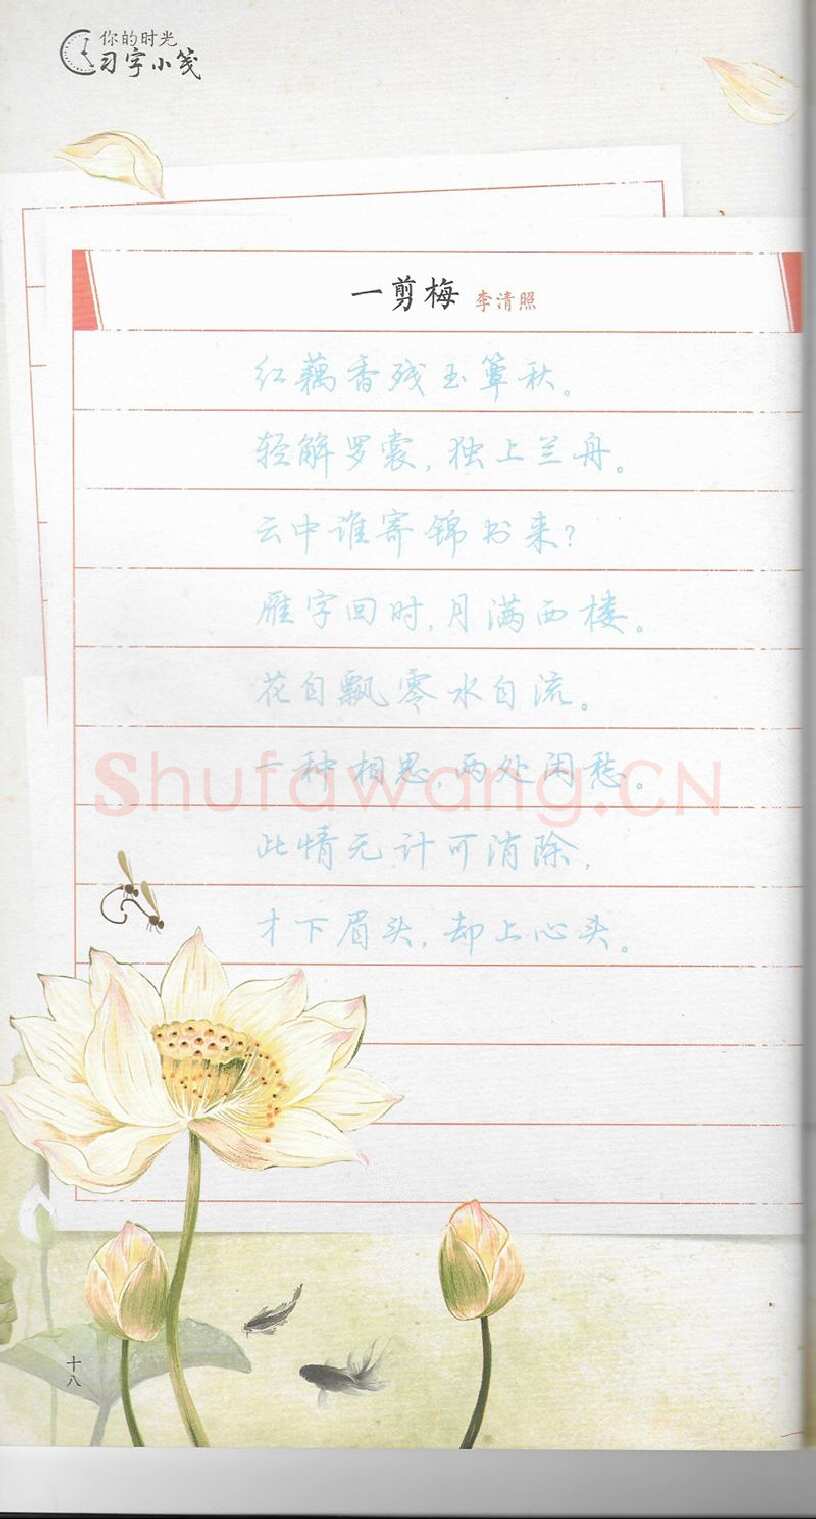 你的时光
习字小笺
一剪梅 李清照
红藕香残玉簟秋。
轻解罗裳,独上兰舟。
云中谁寄锦书来?
雁字回时,月满西楼。
花自飘零水自流。
一种相思,两处闲愁。
此情无计可消除,
才下眉头,却上心头。
Shufawang.CN
十八